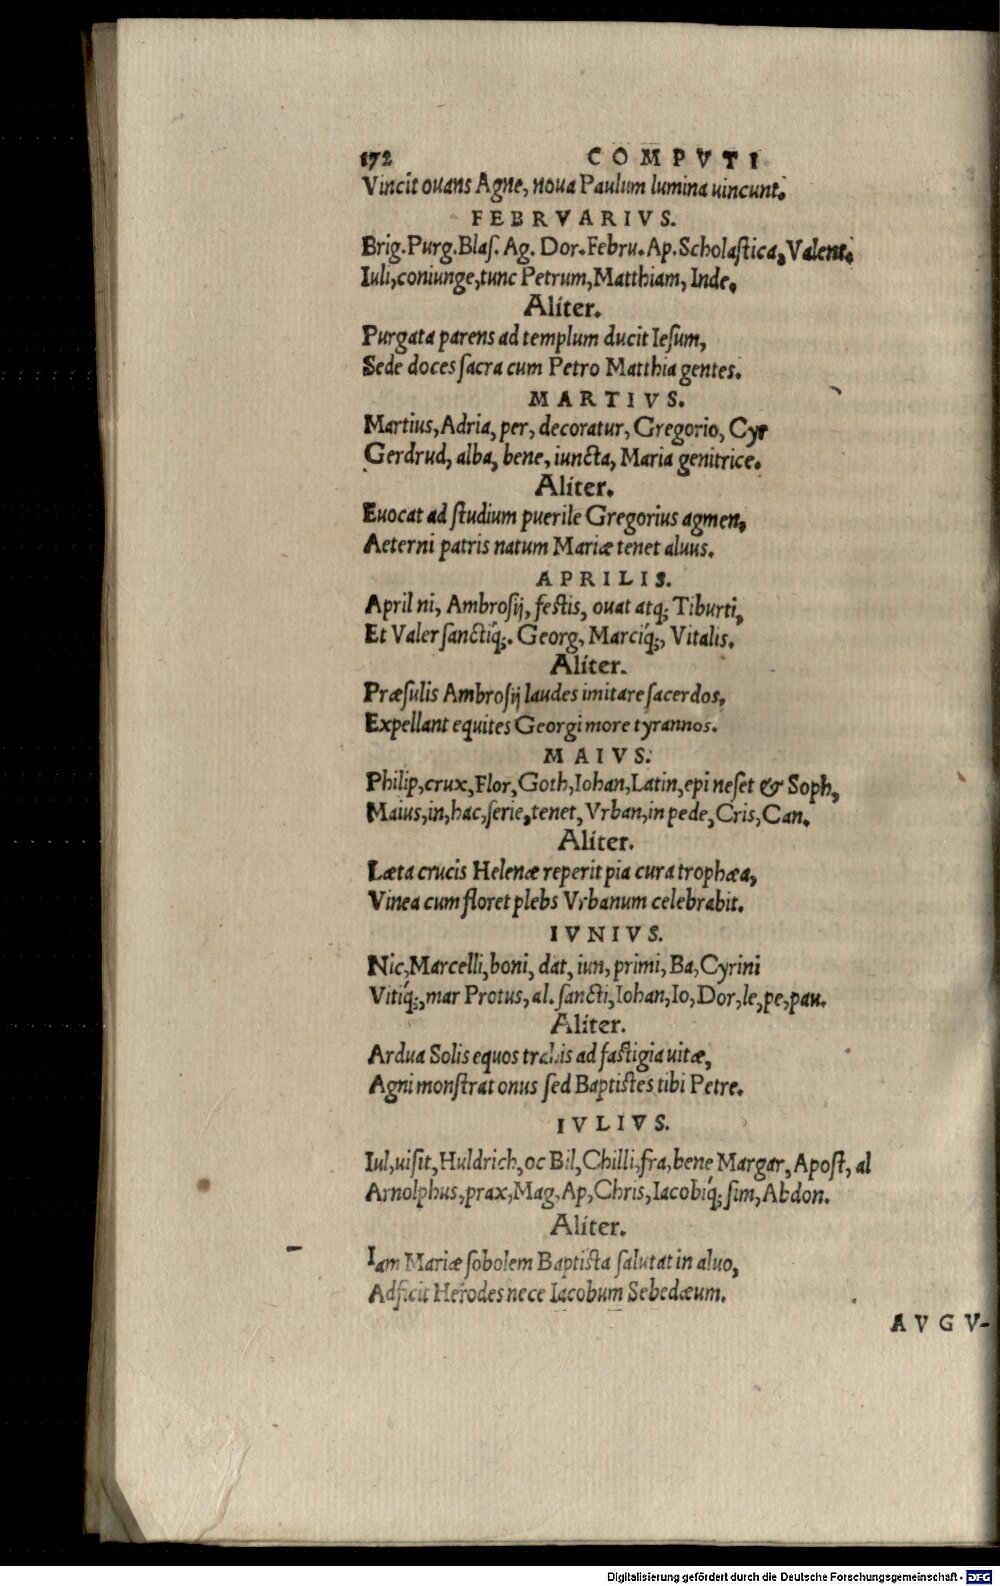 172 COMPVTI
Vincit ouans Agne, noua Paulum lumina uincunt.
FEBRVARIVS.
Brig. Purg. Blaſ. Ag. Dor. Febru. Ap. Scholaſtica, Valent.
Iuli, coniunge, tunc Petrum, Matthiam, Inde.
Aliter.
Purgata parens ad templum ducit Ieſum,
Sede doces ſacra cum Petro Matthia gentes.
MARTIVS.
Martius, Adria, per, decoratur, Gregorio, Cyr
Gerdrud, alba, bene, iuncta, Maria genitrice.
Aliter.
Euocat ad ſtudium puerile Gregorius agmen,
Aeterni patris natum Mariæ tenet aluus.
APRILIS.
April ni, Ambroſij, feſtis, ouat atq; Tiburti,
Et Valer ſanctiq́;. Georg, Marciq́;, Vitalis.
Aliter.
Præſulis Ambroſij laudes imitare ſacerdos,
Expellant equites Georgi more tyrannos.
MAIVS.
Philip, crux, Flor, Goth, Iohan, Latin, epi neſet & Soph,
Maius, in, hac, ſerie, tenet, Vrban, in pede, Cris, Can.
Aliter.
Læta crucis Helenæ reperit pia cura trophæa,
Vinea cum floret plebs Vrbanum celebrabit.
IVNIVS.
Nic, Marcelli, boni, dat, iun, primi, Ba, Cyrini
Vitiq́;, mar Protus, al. ſancti, Iohan, Io, Dor, le, pe, pau.
Aliter.
Ardua Solis equos ad faſtigia uitæ,
Agni monſtrat onus ſed Baptiſtes tibi Petre.
IVLIVS.
Iul, uiſit, Huldrich, oc Bil, Chilli, fra, bene Margar, Apoſt, al
Arnolphus, prax, Mag, Ap, Chris, Iacobiq́; ſim, Abdon.
Aliter.
Iam Mariæ ſobolem Baptiſta ſalutat in aluo,
Adficit Herodes nece Iacobum Sebedæum.
AVGV-
Digitalisierung gefördert durch die Deutsche Forschungsgemeinschaft - DFG